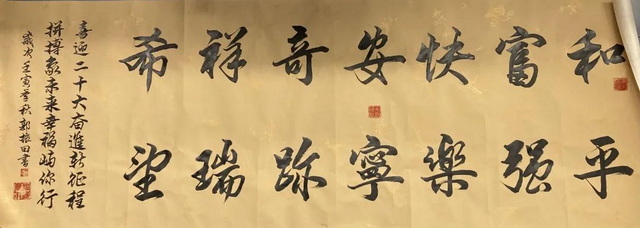 和平
富强
快樂
安寧
奇跡
祥瑞
希望
喜迎二十大奋進新征程
拼搏象未来幸福与你行
歲次壬寅季秋郭振田書